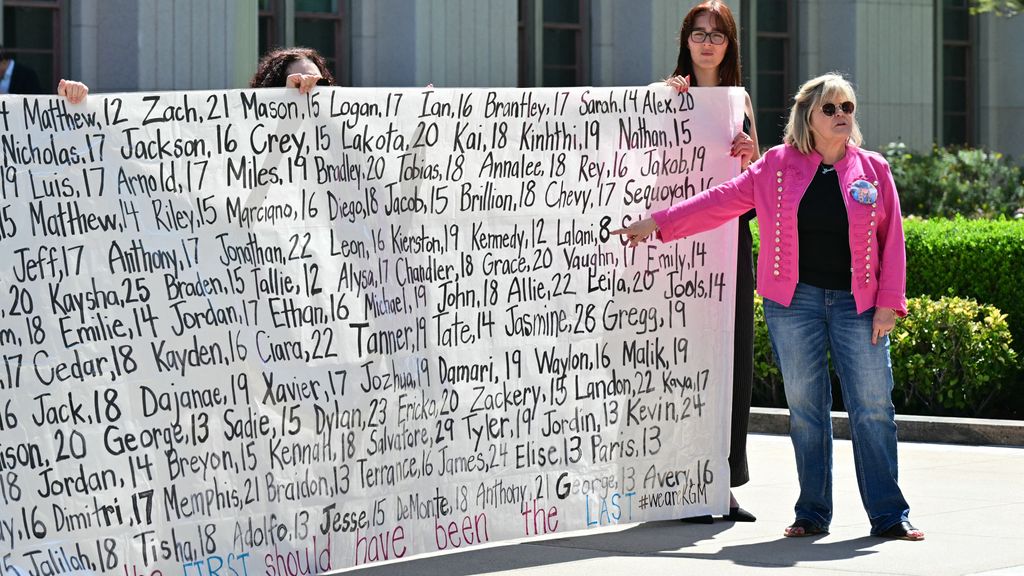 4 Matthew, 12 Zach, 21 Mason, 15 Logan, 17 Ian, 16 Brantley, 17 Sarah, 14 Alex, 20
Nicholas, 17 Jackson, 16 Crey, 15 Lakota, 20 Kai, 18 Kinhthi, 19 Nathan, 15
19 Luis, 17 Arnold, 17 Miles, 19 Bradley, 20 Tobias, 18 Annalee, 18 Rey, 16 Jakob, 19
15 Matthew, 14 Riley, 15 Marciano, 16 Diego, 18 Jacob, 15 Brillion, 18 Chevy, 17 Sequoyah, 16
Jeff, 17 Anthony, 17 Jonathan, 22 Leon, 16 Kierston, 19 Kennedy, 12 Lalani, 8
20 Kaysha, 25 Braden, 15 Tallie, 12 Alysa, 17 Chandler, 18 Grace, 20 Vaughn, 17 Emily, 14
18 Emilie, 14 Jordan, 17 Ethan, 16 Michael, 19 John, 18 Allie, 22 Leila, 20 Jools, 14
17 Cedar, 18 Kayden, 16 Ciara, 22 Tanner, 19 Tate, 14 Jasmine, 28 Gregg, 19
16 Jack, 18 Dajanae, 19 Xavier, 17 Jozhua, 19 Damari, 19 Waylon, 16 Malik, 19
ison, 20 George, 13 Sadie, 15 Dylan, 23 Ericka, 20 Zackery, 15 Landon, 22 Kaya, 17
18 Jordan, 14 Breyon, 15 Kennah, 18 Salvatore, 29 Tyler, 19 Jordin, 13 Kevin, 24
16 Dimitri, 17 Memphis, 21 Braidon, 13 Terrance, 16 James, 24 Elise, 13 Paris, 13
15 Jalilah, 18 Tisha, 18 Adolfo, 13 Jesse, 15 DeMonte, 18 Anthony, 21 George, 13 Avery, 16
the FIRST should have been the LAST #weareKGM